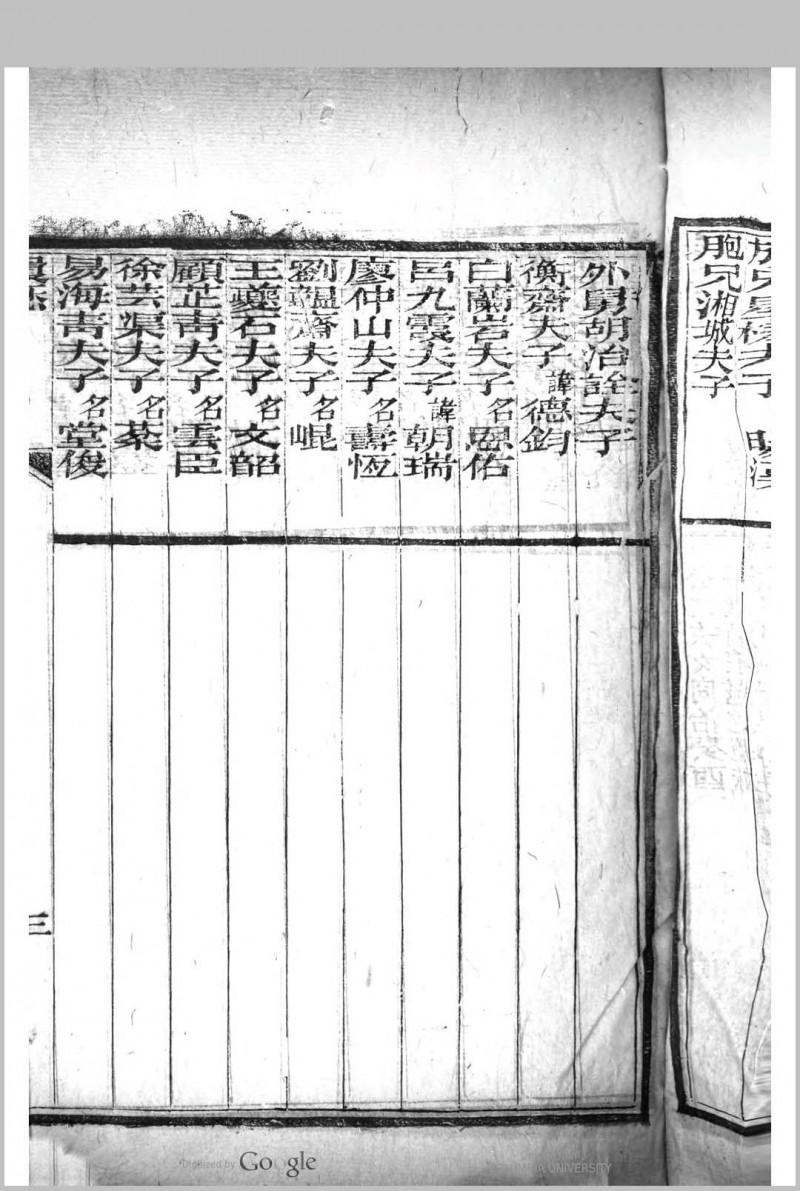 胞兄湘城夫子
外舅胡治詮夫子
衡齋夫子 諱德鈞
白蘭岩夫子 名恩佑
呂九霞夫子 諱朝瑞
廖仲山夫子 名壽恆
劉韞齋夫子 名崐
王夔石夫子 名文韶
顧芷靑夫子 名雲臣
徐芸渠夫子 名棻
易海靑夫子 名堂俊
三
Digitized by Google
UNIVERSITY